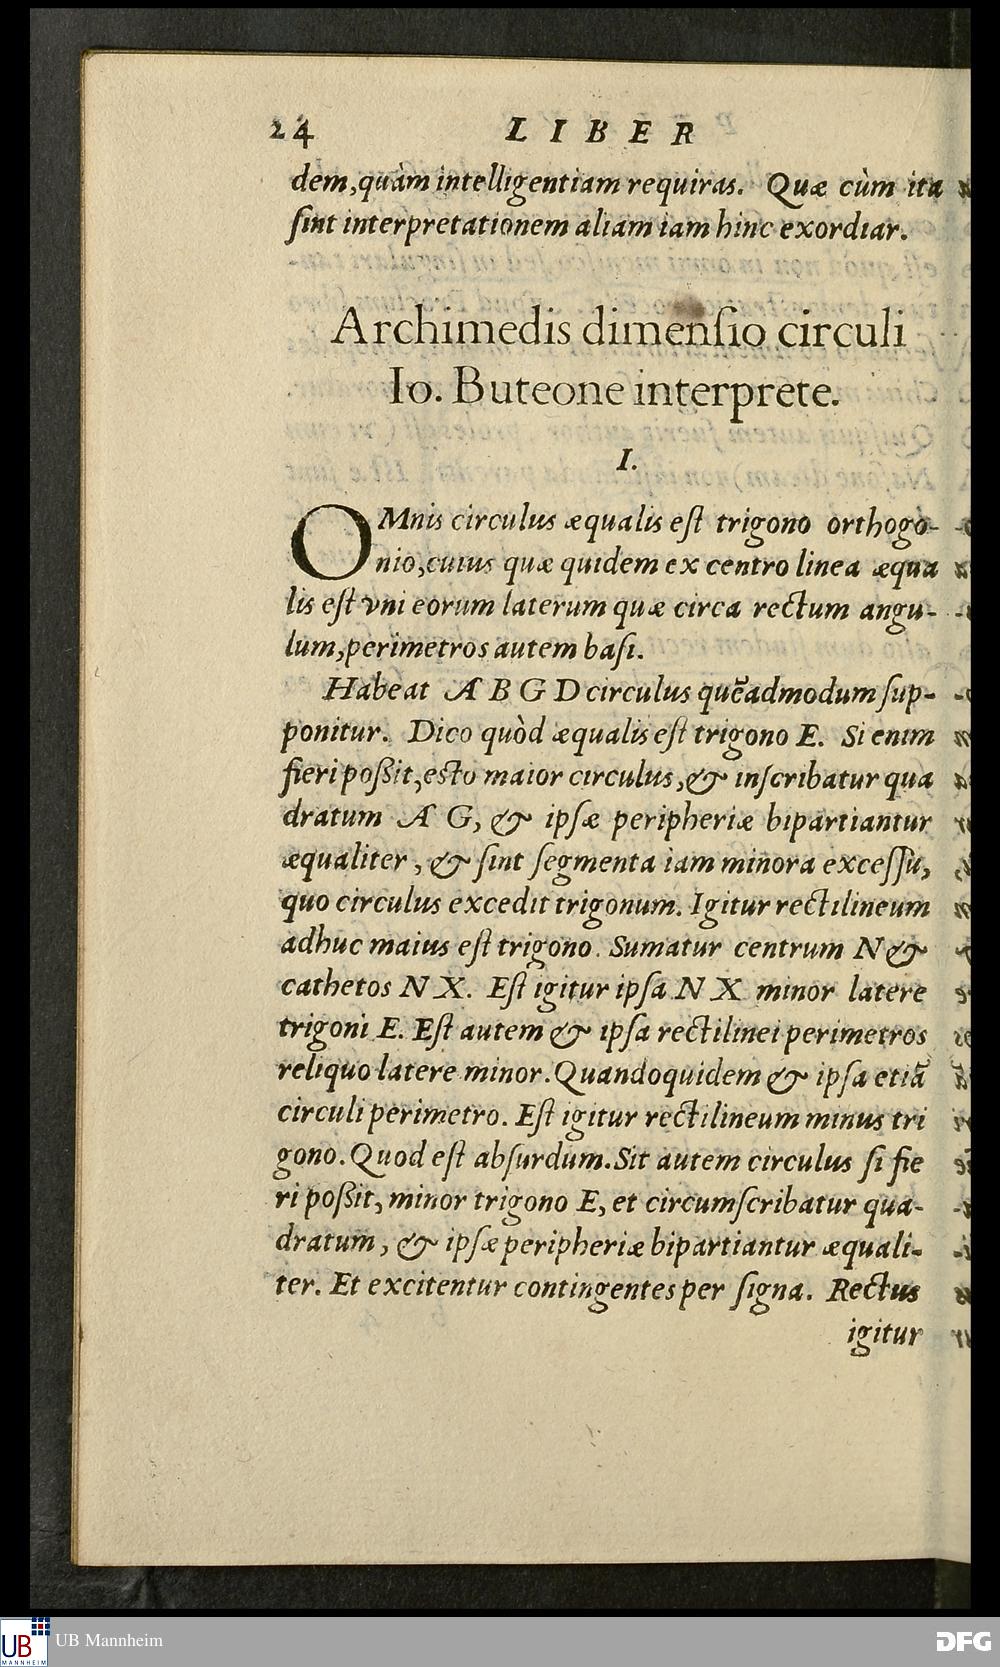 24 LIBER
dem,quàm intelligentiam requiras. Quæ cùm ita
ſint interpretationem aliam iam hinc exordiar.
Archimedis dimenſio circuli
Io. Buteone interprete.
I.
OMnis circulus æqualis eſt trigono orthogo-
nio,cuius quæ quidem ex centro linea æqua
lis eſt vni eorum laterum quæ circa rectum angu-
lum,perimetros autem baſi.
Habeat A B G D circulus quẽadmodum ſup-
ponitur. Dico quòd æqualis eſt trigono E. Si enim
fieri poßit,esto maior circulus,& inſcribatur qua
dratum A G, & ipſæ peripheriæ bipartiantur
æqualiter, & ſint ſegmenta iam minora exceſſu,
quo circulus excedit trigonum. Igitur rectilineum
adhuc maius eſt trigono. Sumatur centrum N &
cathetos N X. Eſt igitur ipſa N X minor latere
trigoni E. Eſt autem & ipſa rectilinei perimetros
reliquo latere minor. Quandoquidem & ipſa etiã
circuli perimetro. Eſt igitur rectilineum minus tri
gono. Quod eſt abſurdum. Sit autem circulus ſi fie
ri poßit, minor trigono E, et circumſcribatur qua-
dratum, & ipſæ peripheriæ bipartiantur æquali-
ter. Et excitentur contingentes per ſigna. Rectus
igitur
UB MANNHEIM
UB Mannheim
DFG